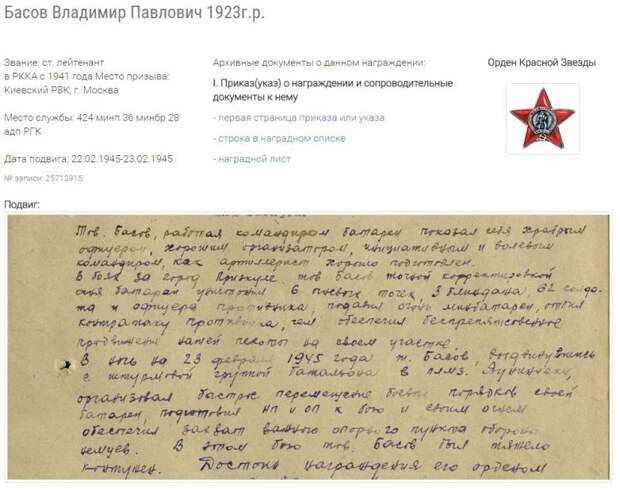 Басов Владимир Павлович 1923г.р.
Звание: ст. лейтенант
в РККА с 1941 года Место призыва:
Киевский РВК, г. Москва
Место службы: 424 минп 36 минбр 28
адп РГК
Дата подвига: 22.02.1945-23.02.1945
№ записи: 25712915
Архивные документы о данном награждении:
I. Приказ(указ) о награждении и сопроводительные
документы к нему
- первая страница приказа или указа
- строка в наградном списке
- наградной лист
Орден Красной Звезды
Подвиг:
Тов. Басов, работая командиром батареи показал себя храбрым
офицером, хорошим организатором, инициативным и волевым
командиром, как артиллерист хорошо подготовлен.
В боях за город Приекуле тов Басов точной корректировкой
огня батареи уничтожил 6 огневых точек, 3 блиндажа, 62 солда-
та и офицера противника, подавил огонь минбатареи, отбил
контратаку противника, чем обеспечил беспрепятственное
продвижение нашей пехоты на своем участке.
В ночь на 23 февраля 1945 года т. Басов выдвинувшись
с штурмовой группой батальона в
организовал быстрое перемещение боевых порядков своей
батареи, подготовил НП и ОП к бою и своим огнем
обеспечил захват важного опорного пункта обороны
немцев. В этом бою тов. Басов был тяжело
контужен. Достоин награждения его орденом